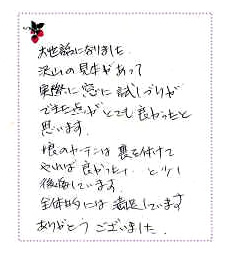 お世話になりました。
沢山の見本があって
実際に窓に試しづりが
できた点がとても良かったと
思います。
娘のカーテンは裏を付けて
やれば良かった、と少し
後悔しています。
全体的には満足しています
ありがとうございました。